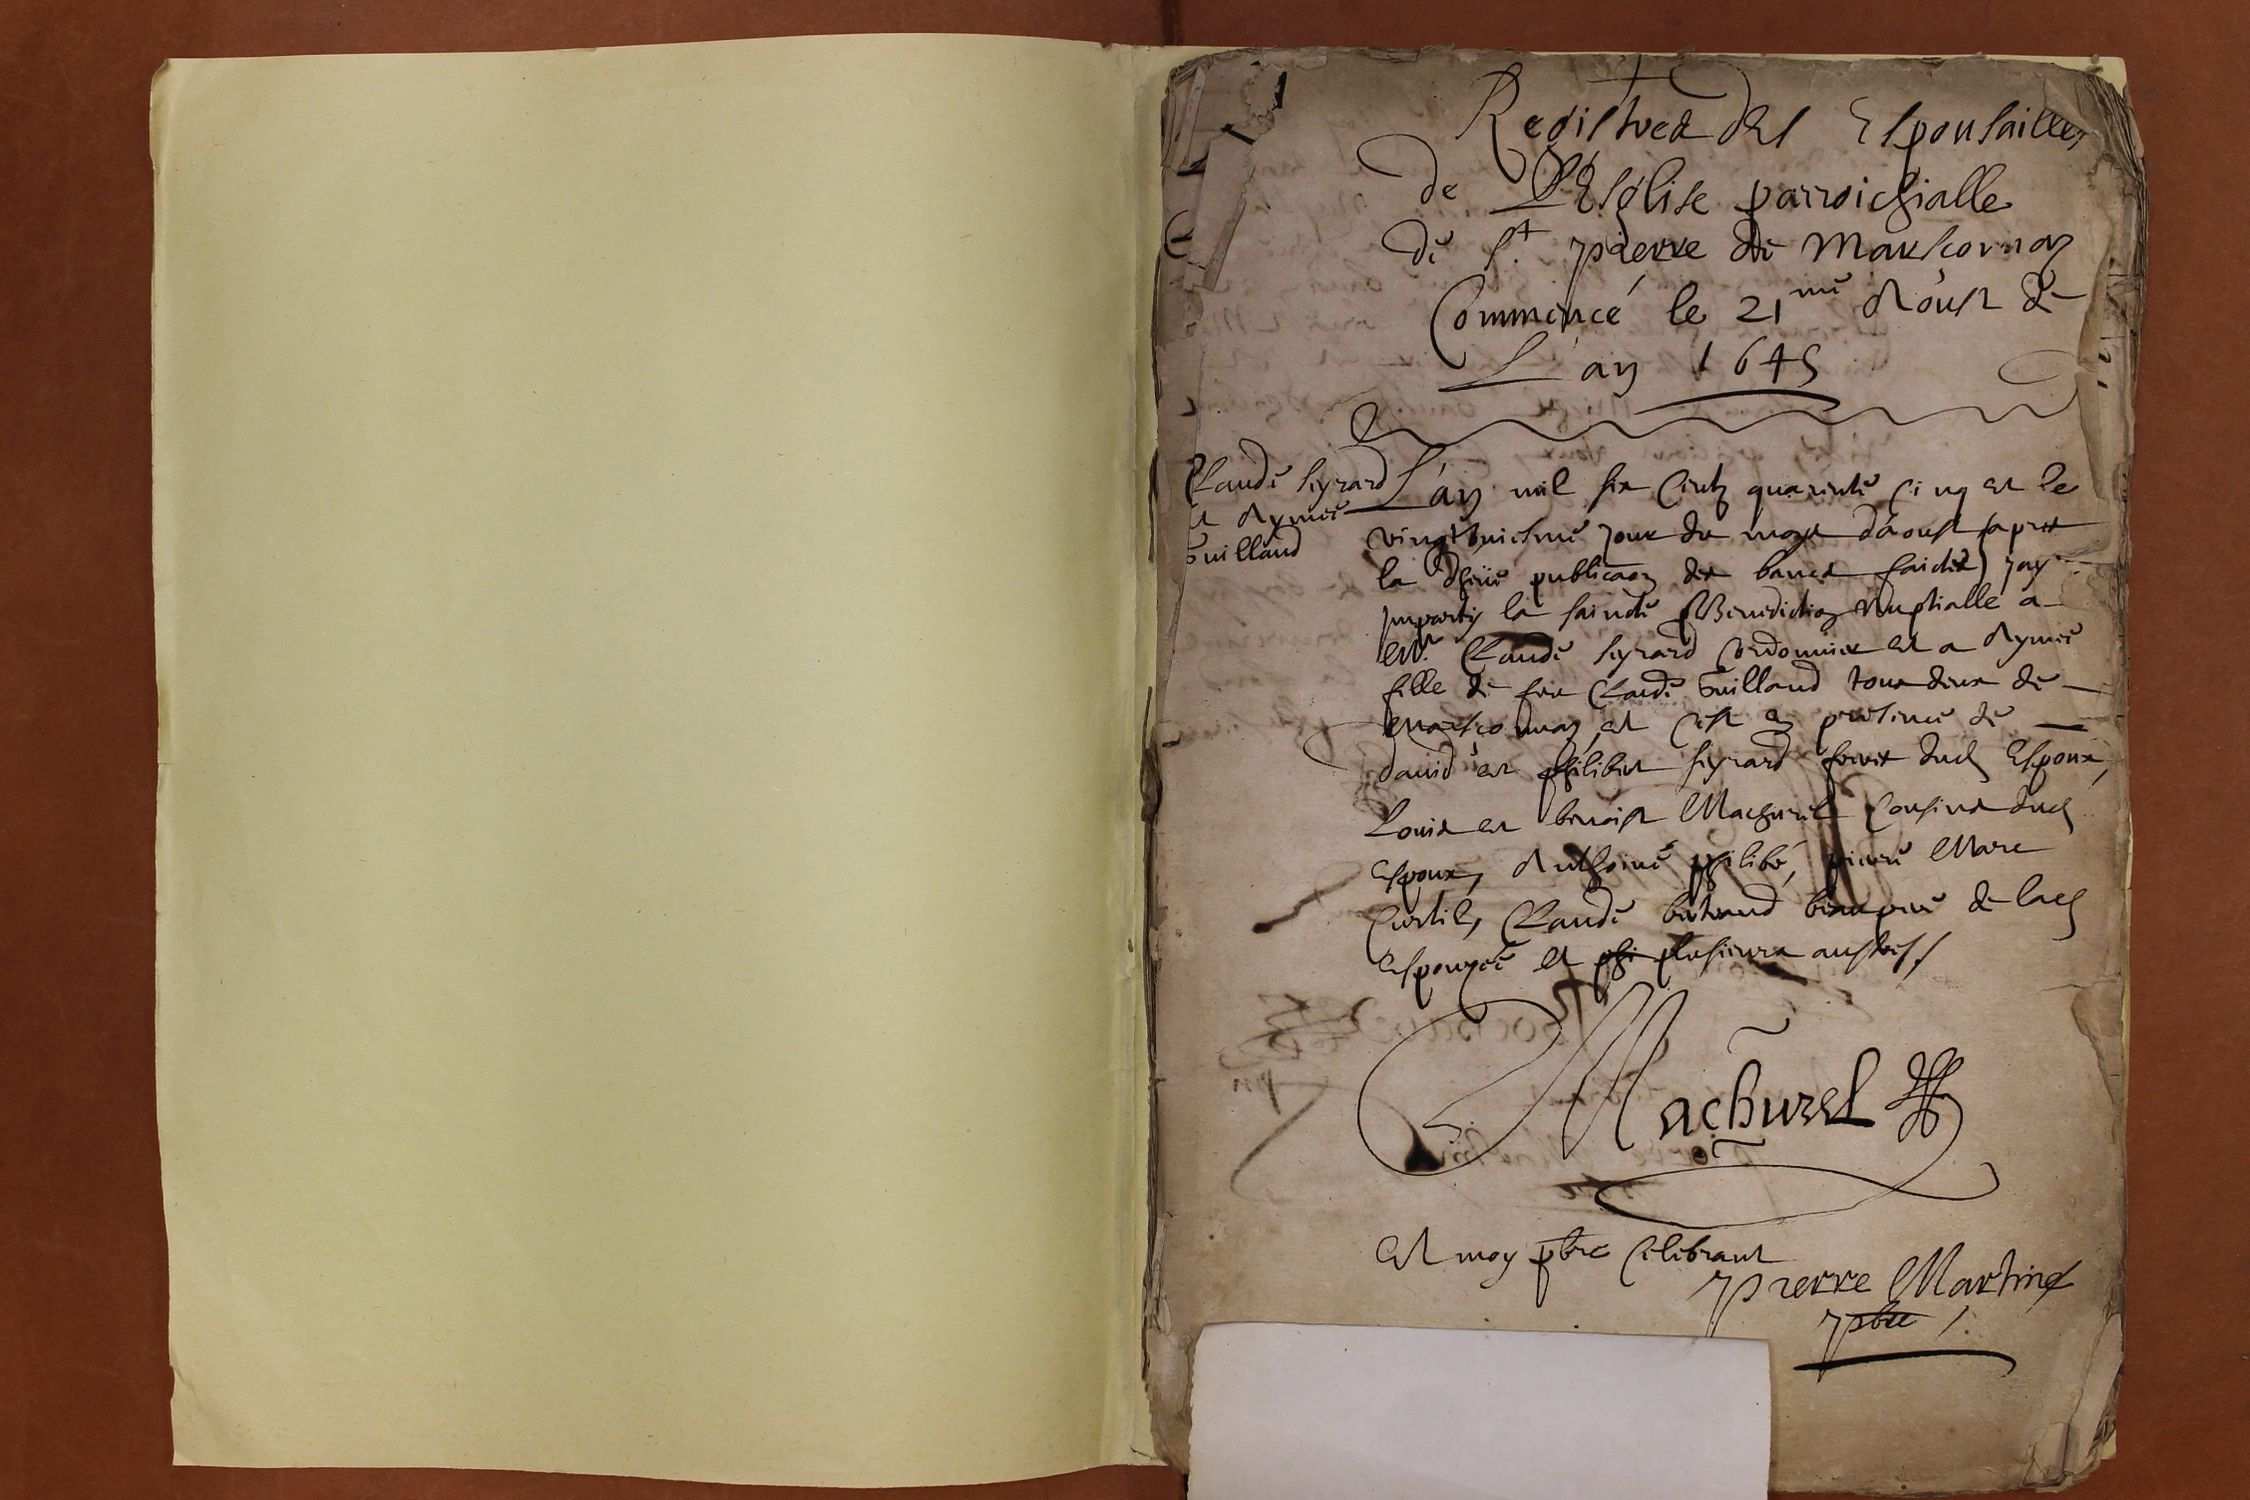 Registre des Espousailles
de L'Esglise parroichialle
de St. pierre de Marscornay
Commencé le 21me Aoust de
L'an 1645
Claude seyrard
et Aymee
Guilland
L'an mil six Centz quarente Cinq et le
vingthuictme jour du moys d'aoust (apres
la publicaon des bancz faictes) jay
imparty la saincte Benediction Nuptialle a
Claude seyrard Cordonnier et a Aymee
fille de feu Claude Guilland tous deux de
et C'est en presence de
david et philibert seyrard freres dud Espoux,
Louis et benoist Machurel Cousins dud
espoux, Anthoine philibé, pierre Marc
Curtil, Claude bertrand beaupere de lad
espouzée et phi plusieurs aultres /
Machurel
Et moy pbre Celebrant
Pierre Martin
pbre /.